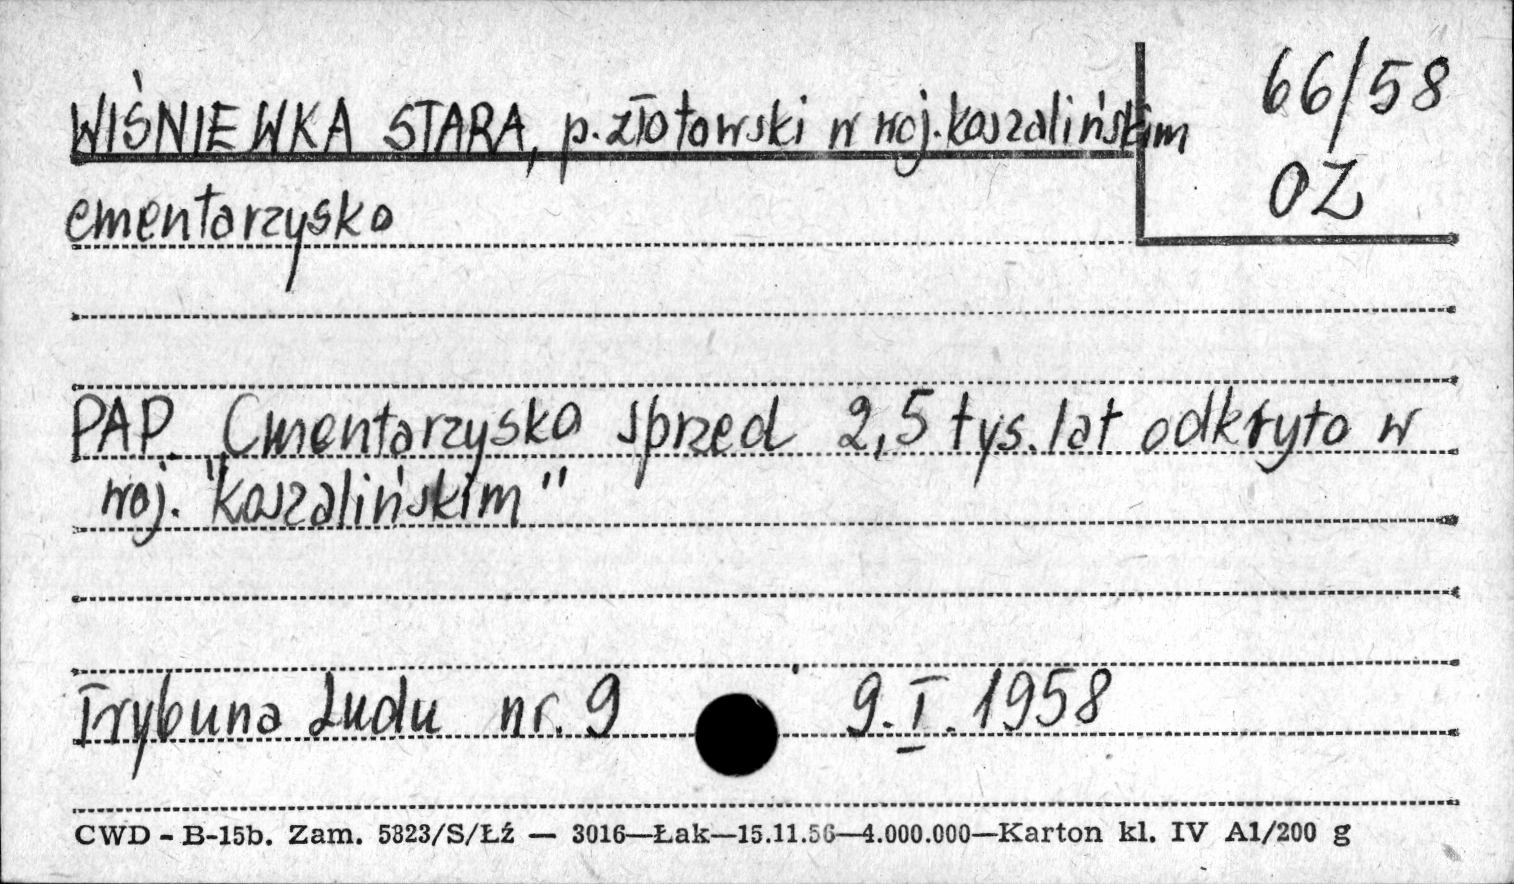 WIŚNIEWKA STARA, p. złotowski w woj. koszalińskim
66/58
OZ
cmentarzysko
PAP. „Cmentarzyska sprzed 2,5 tys. lat odkryto w
woj. "koszalińskim"
Trybuna Ludu nr. 9 9.I.1958
CWD - B-15b. Zam. 5823/S/Łź — 3016—Łak—15.11.56—4.000.000—Karton kl. IV A1/200 g